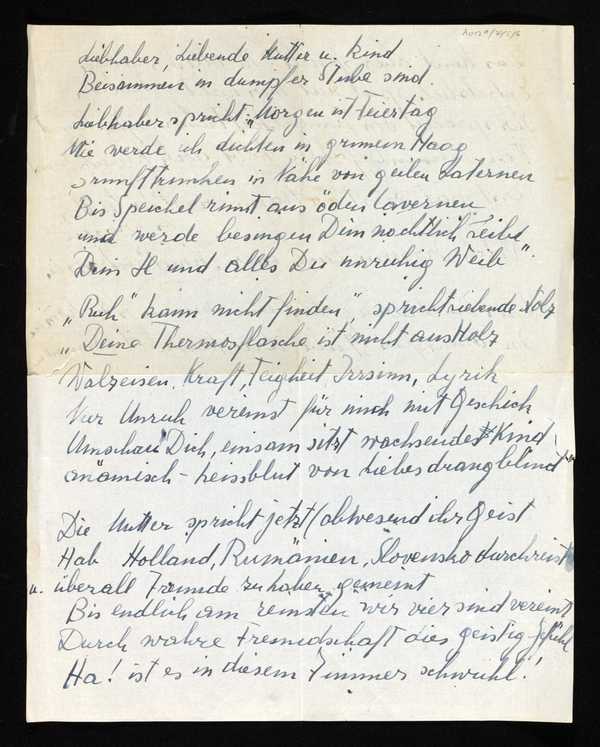 Liebhaber, Liebende Mutter u. Kind
Beisammen in dumpfer Stube sind.
Liebhaber spricht: „Morgen ist Feiertag
Wie werde ich dichten in grünem Haag
brunfttrunken in Nähe von geilen Laternen
Bis Speichel rinnt aus öden Cavernen
und werde besingen Dein nächtlich Leibe
Dein H und alles Du unruhig Weib".
„Ruh" kann nicht finden", spricht Liebende stolz
„Deine Thermosflasche ist nicht aus Holz
Walzeisen, Kraft, Feigheit Irrsinn, Lyrik
Nur Unruh vereinst für mich mit Geschick
Umschau Dich, einsam sitzt wachsendes Kind
anämisch-heissblut von Liebesdrang blind
Die Mutter spricht jetzt (abwesend ihr Geist
Hab Holland, Rumänien, Slovensko durchreist
u. überall Freunde zu haben gemeint
Bis endlich am reinsten wir vier sind vereint
Durch wahre Freundschaft dies geistig Gefühl
Ha! ist es in diesem Zimmer schwühl!